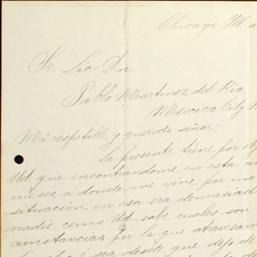 Chicago, M. a
Sr. Lic. Dn.
Pablo Martinez del Rio,
Mexico City M
Mi respetable y querido señor:
La presente tiene por obj
Ud. que encontrandome en esta ciu
mesa, a donde me vine por mo
situación en esa era demasiad
nadie como Ud. sabe cuales son
cunstancias por la que atravesam
ser desde que dejo de